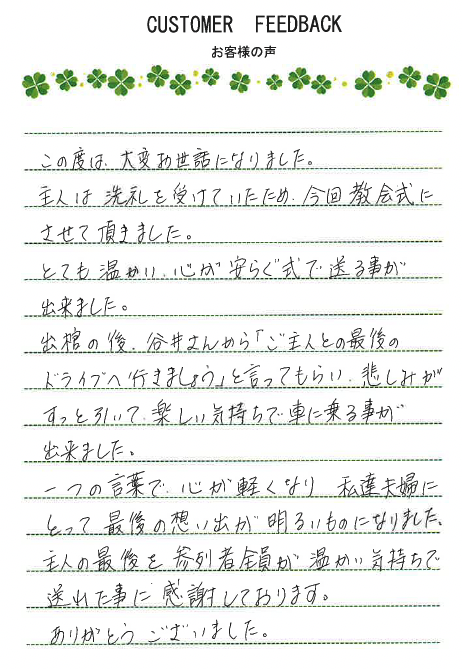 CUSTOMER FEEDBACK
お客様の声
この度は、大変お世話になりました。
主人は洗礼を受けていたため、今回教会式に
させて頂きました。
とても温かい、心が安らぐ式で送る事が
出来ました。
出棺の後、谷井さんから「ご主人との最後の
ドライブへ行きましょう」と言ってもらい、悲しみが
すっと引いて、楽しい気持ちで車に乗る事が
出来ました。
一つの言葉で、心が軽くなり 私達夫婦に
とって最後の想い出が明るいものになりました、
主人の最後を参列者全員が温かい気持ちで
送れた事に感謝しております。
ありがとうございました。